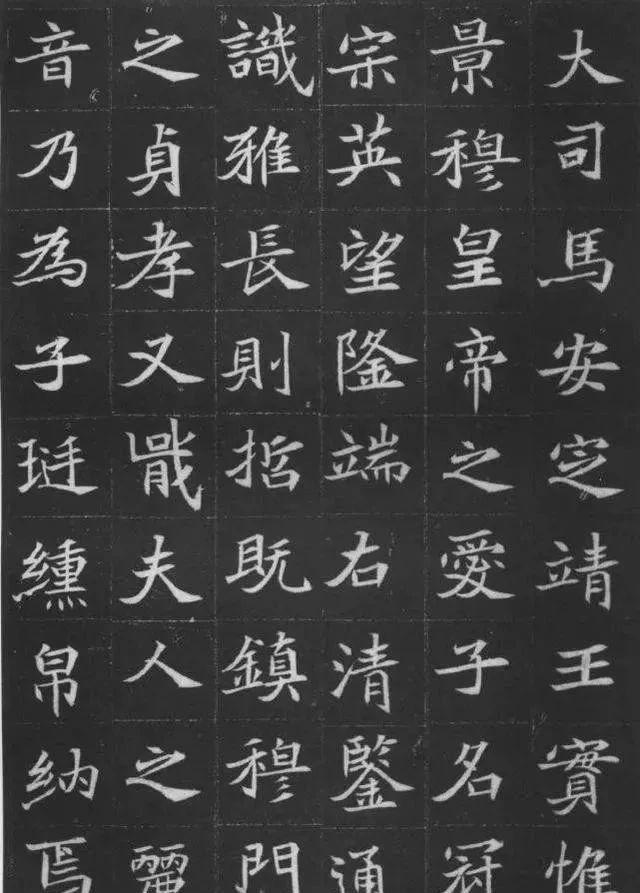 大司馬安定靖王實惟
景穆皇帝之愛子名冠
宗英望隆端右清鑒通
識雅長則哲既鎮穆門
之貞孝又戢夫人之麗
音乃為子珽纁帛納焉